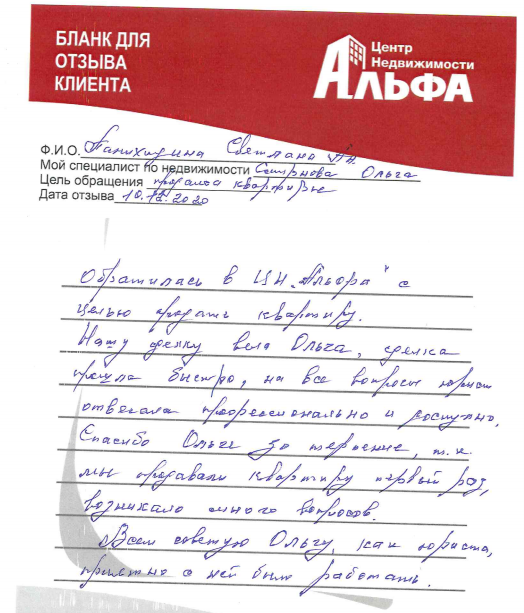 БЛАНК ДЛЯ
ОТЗЫВА
КЛИЕНТА
Центр
Недвижимости
АЛЬФА
Ф.И.О. Панихидина Светлана Ан.
Мой специалист по недвижимости Смирнова Ольга
Цель обращения продажа квартиры
Дата отзыва 10.12.2020
Обратилась в ЦН "Альфа" с
целью продать квартиру.
Нашу сделку вела Ольга, сделка
прошла быстро, на все вопросы юрист
отвечала профессионально и доступно.
Спасибо Ольге за терпение, т.к.
мы продавали квартиру первый раз,
возникало много вопросов.
Всем советую Ольгу, как юриста,
приятно с ней было работать.